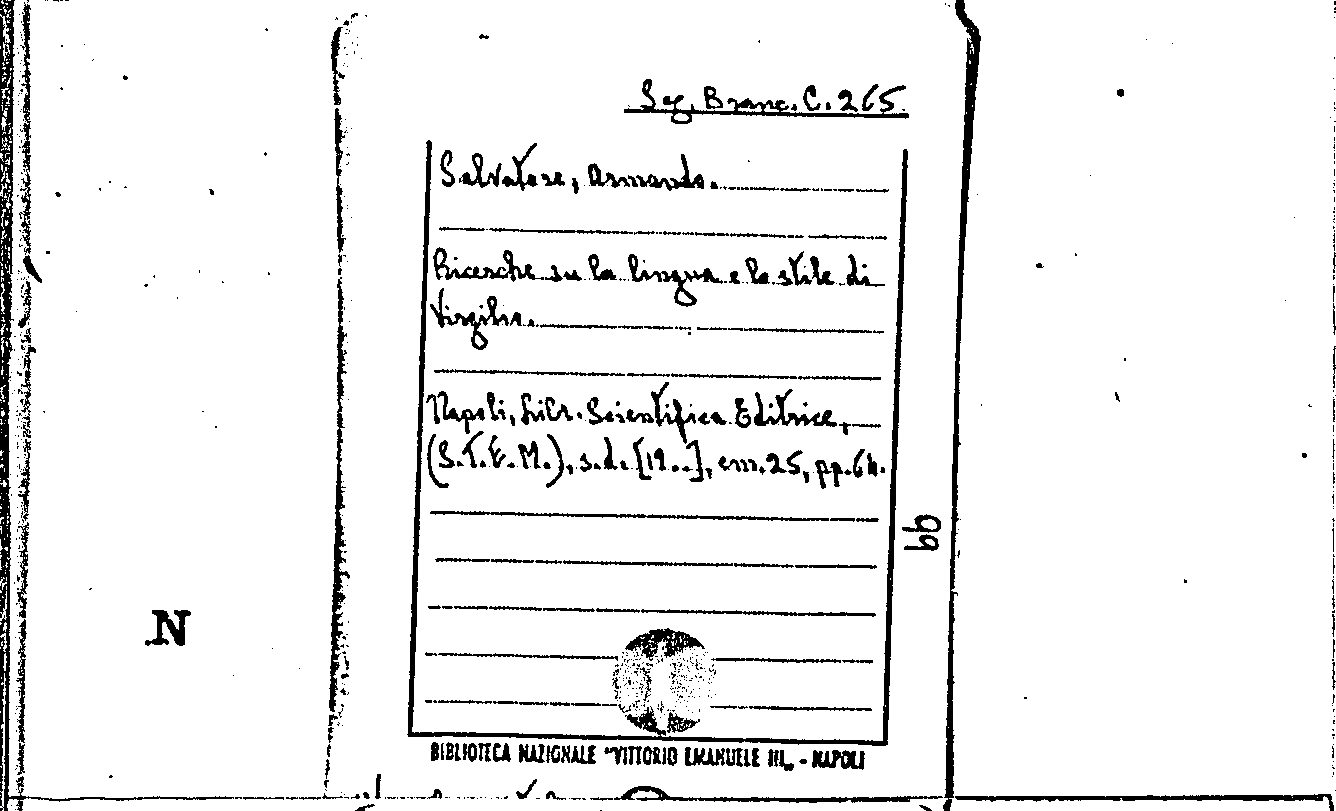 Seg. Branc. C. 265.
Salvatore, Armando.
Ricerche su la lingua e lo stile di
Virgilio.
Napoli, Libr. Scientifica Editrice,
(S.T.E.M.), s.d. [19..], cm. 25, pp. 64.
99
N
BIBLIOTECA NAZIONALE "VITTORIO EMANUELE III„ - NAPOLI